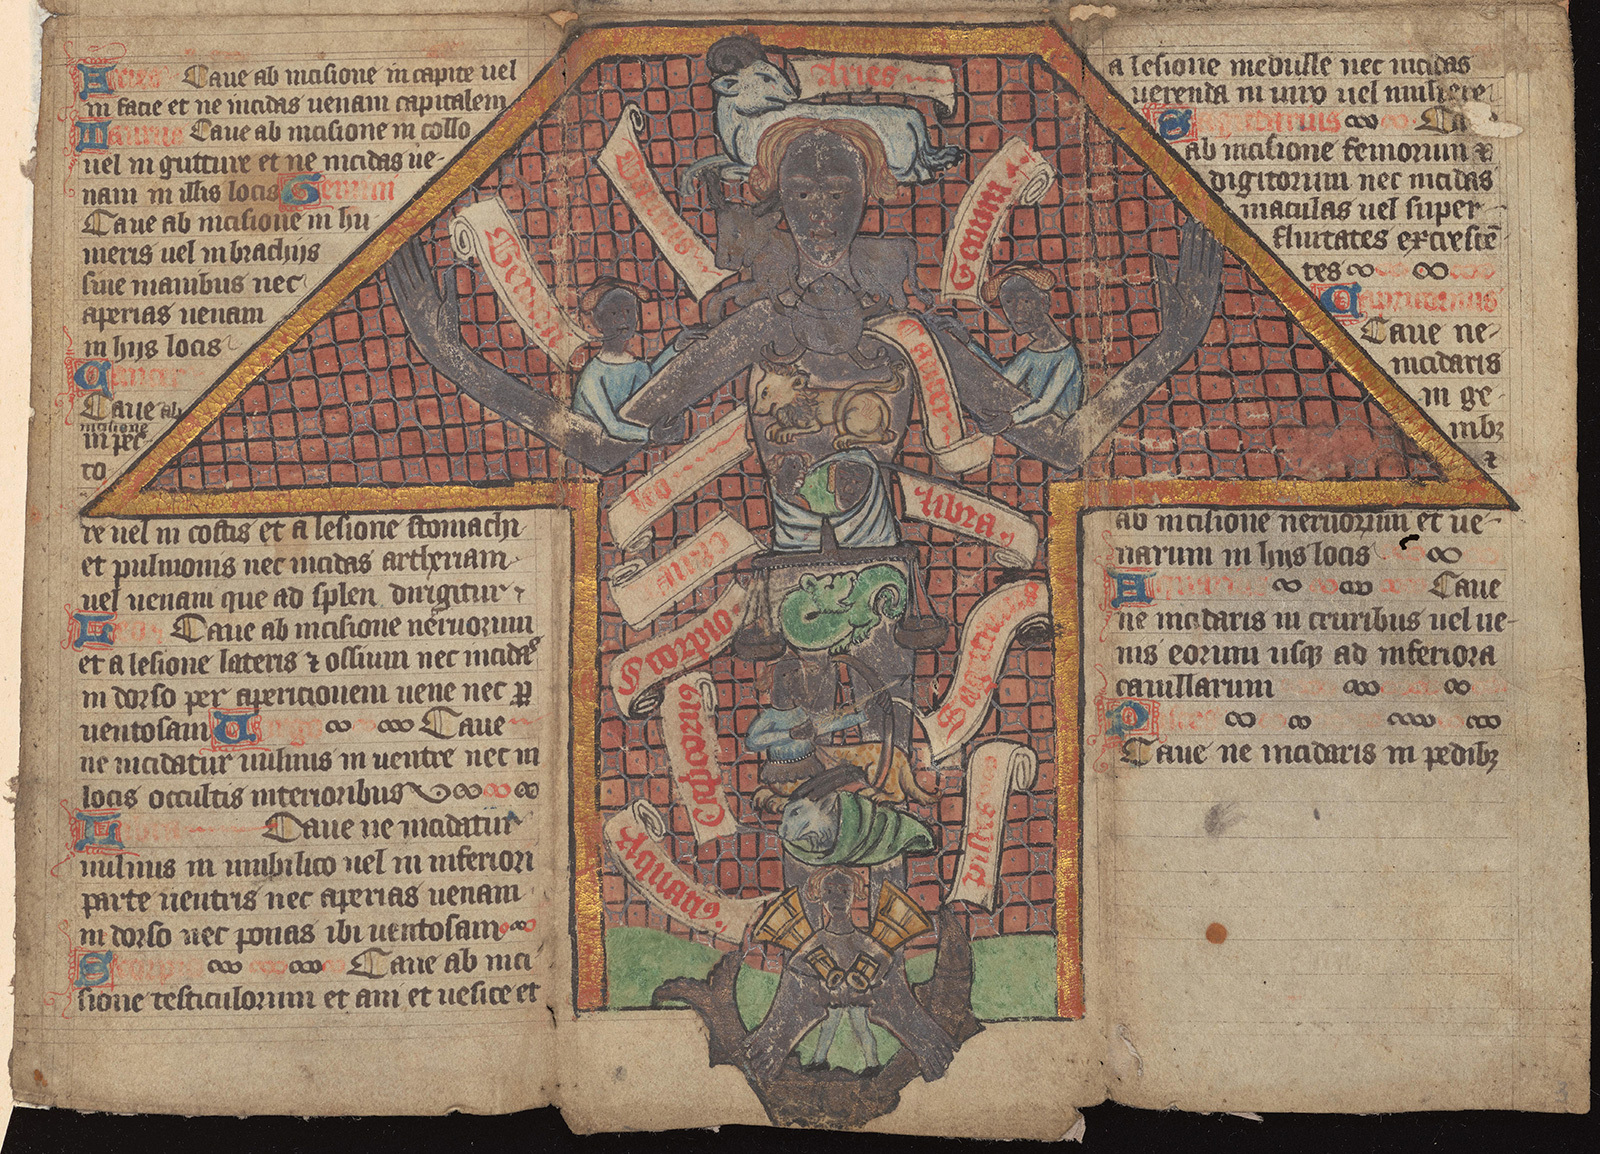 Aries Caue ab incisione in capite uel
in facie et ne incidas uenam capitalem
Taurus Caue ab incisione in collo
uel in gutture et ne incidas ue-
nam in illis locis Gemini
Caue ab incisione in hu
meris uel in brachijs
siue manibus nec
aperias uenam
in hijs locis
Cancer
Caue ab
incisione
in pec
to
re uel in costis et a lesione stomachi
et pulmonis nec incidas artheriam
uel uenam que ad splen dirigitur
Leo Caue ab incisione neruorum
et a lesione lateris ⁊ ossium nec incidas
in dorso per apericionem uene nec ꝑ
uentosam Uirgo Caue
ne incidatur uulnus in uentre nec in
locis occultis interioribus
Libra Caue ne incidatur
uulnus in umbilico uel in inferiori
parte uentris nec aperias uenam
in dorso nec ponas ibi uentosam
Scorpio Caue ab inci
sione testiculorum et ani et uesice et
Aries
Taurus
Gemini
Cancer
Leo
Uirgo
libra
Scorpio
Sagittarius
Capcornꝰ
Aquariꝰ
pisces
a lesione medulle nec incidas
uerenda in uiro uel muliere
Sagittarius Caue
ab incisione femorum ⁊
digitorum nec incidas
maculas uel super
fluitates excrescē
tes
Capricornus
Caue ne
incidaris
in ge-
nibꝫ
⁊
ab incisione neruorum et ue-
narum in hijs locis
Aquarius Caue
ne incidaris in cruribus uel ue-
nis eorum usqꝫ ad inferiora
cauillarum
Pisces
Caue ne incidaris in pedibꝫ